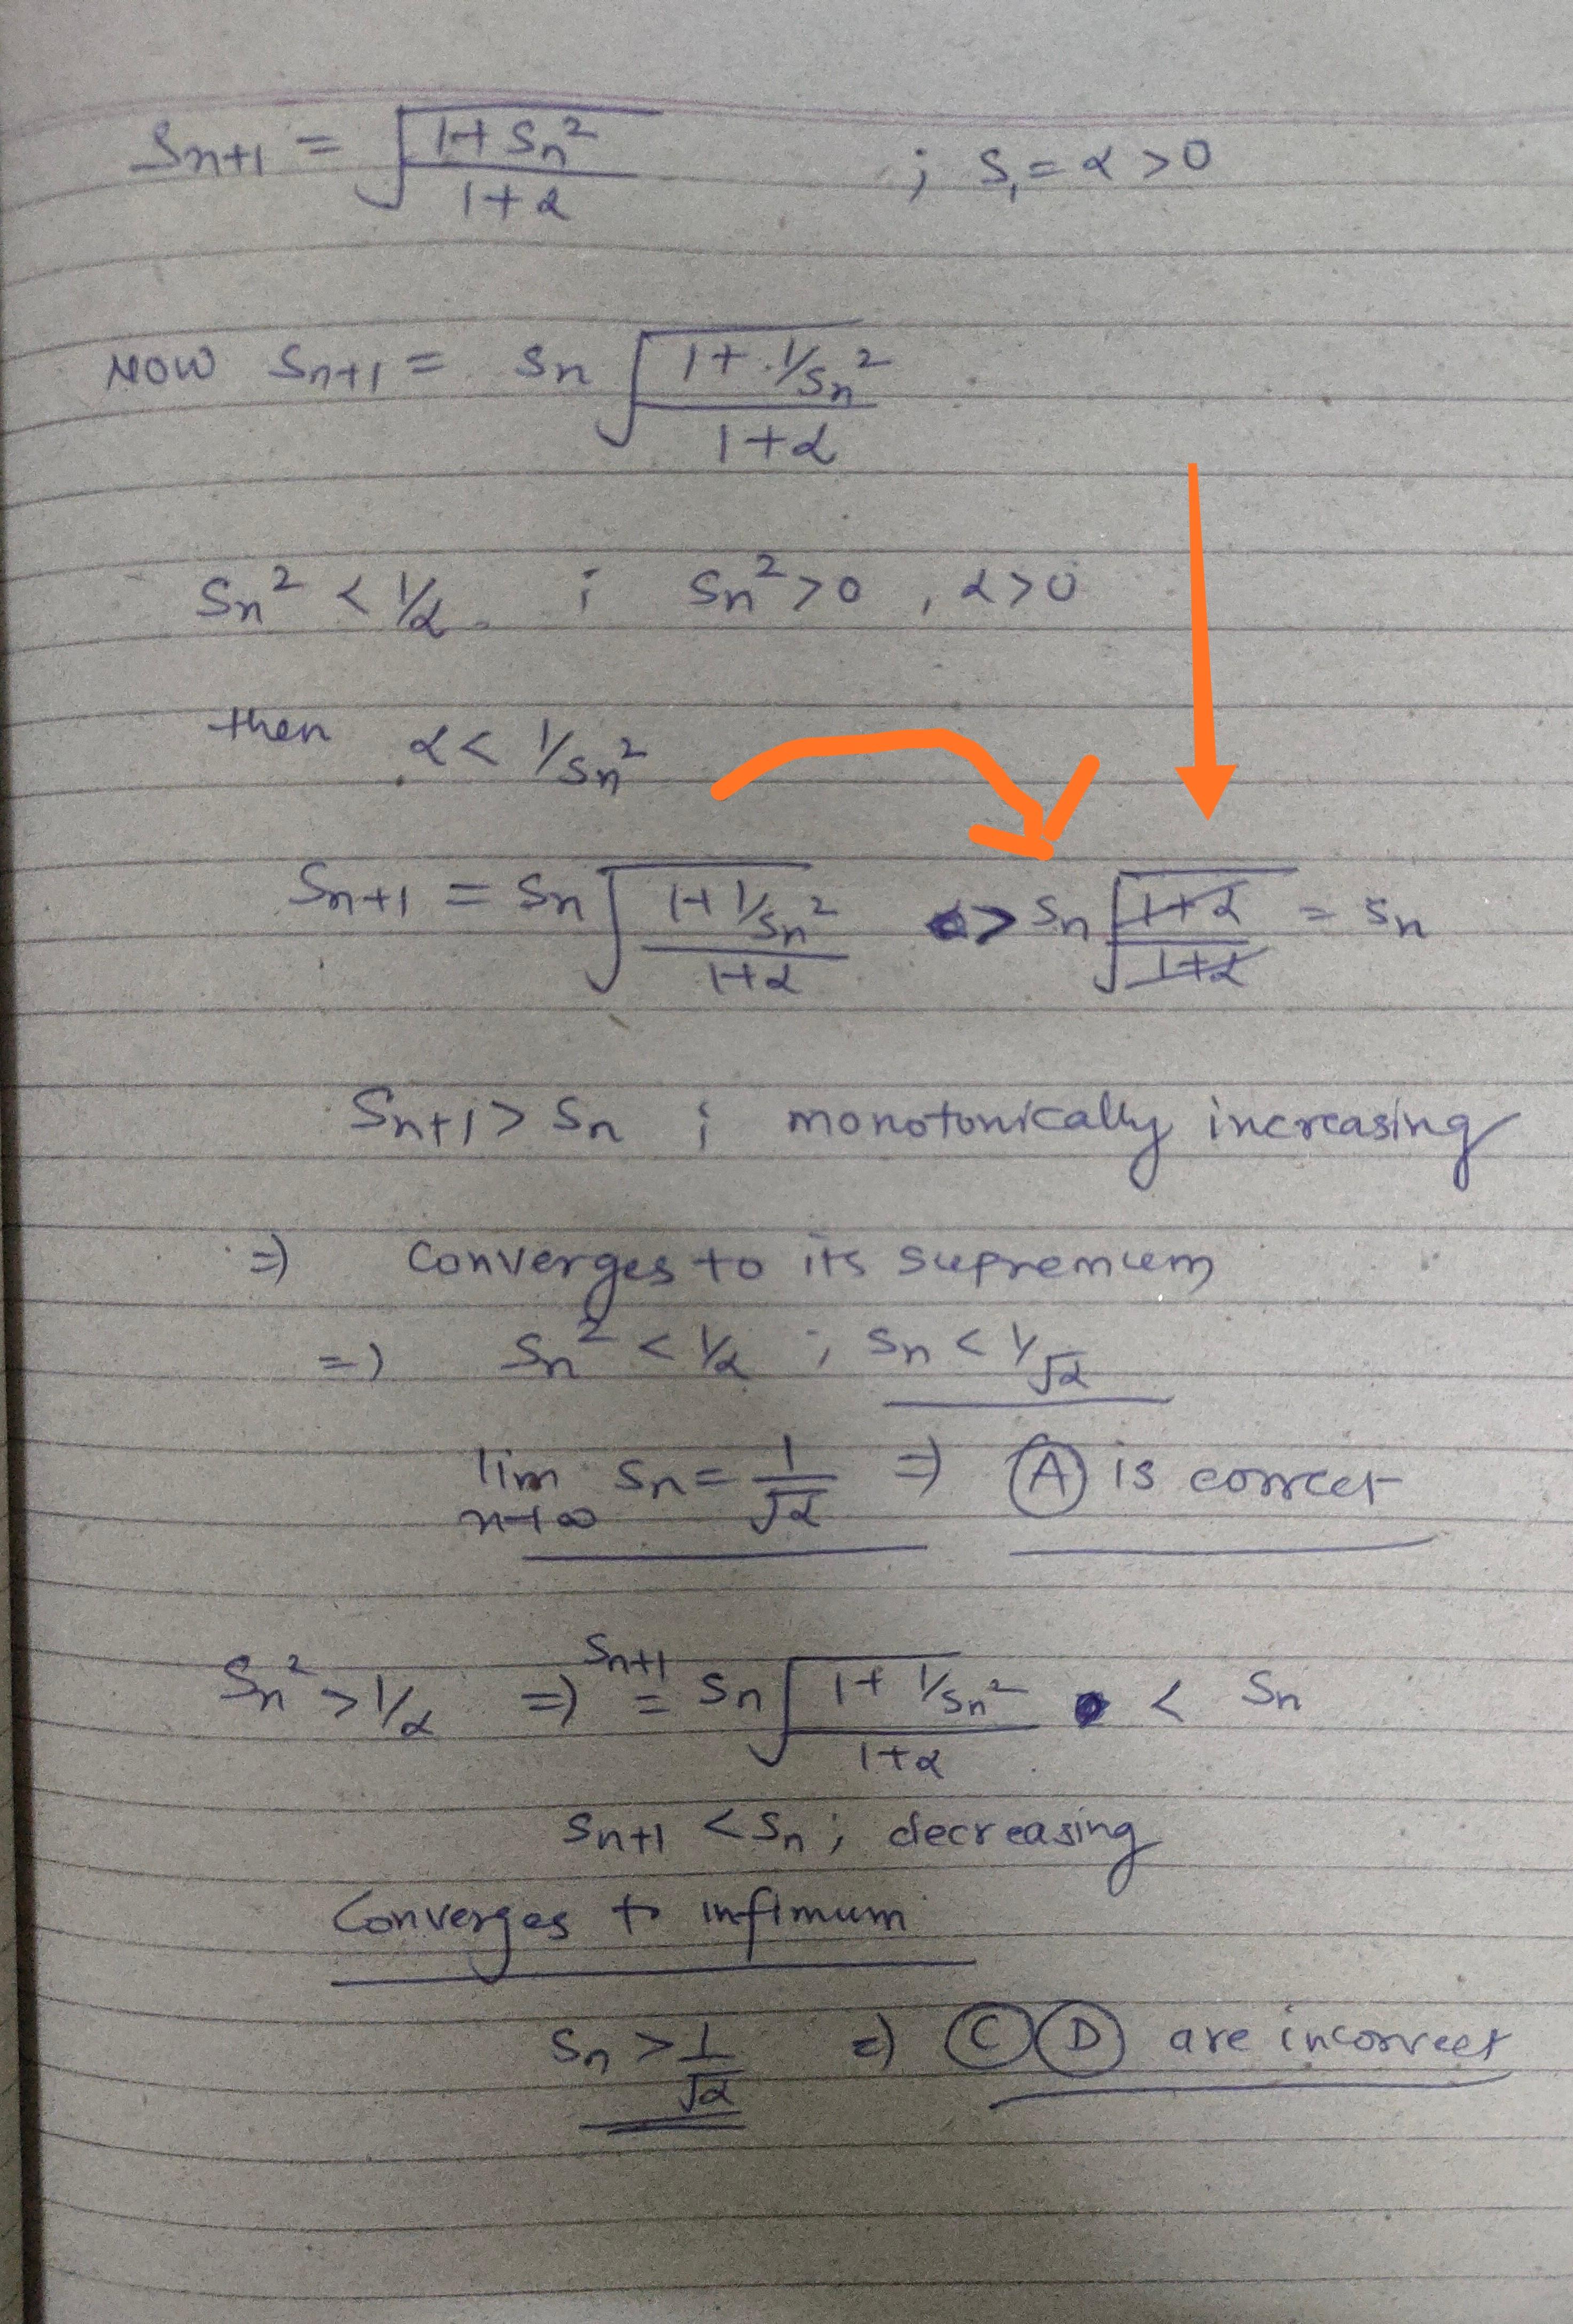 Sn+1 = √((1+Sn²)/(1+α)) ; S₁ = α > 0
NOW Sn+1 = Sn √((1+1/Sn²)/(1+α))
Sn² < 1/α ; Sn² > 0 , α > 0
then α < 1/Sn²
Sn+1 = Sn √((1+1/Sn²)/(1+α)) > Sn √((1+α)/(1+α)) = Sn
Sn+1 > Sn ; monotonically increasing
⇒ Converges to its supremum
⇒ Sn² < 1/α ; Sn < 1/√α
lim n→∞ Sn = 1/√α ⇒ Ⓐ is correct
Sn² > 1/α ⇒ Sn+1 = Sn √((1+1/Sn²)/(1+α)) < Sn
Sn+1 < Sn ; decreasing
Converges to infimum
Sn > 1/√α ⇒ Ⓒ Ⓓ are incorrect